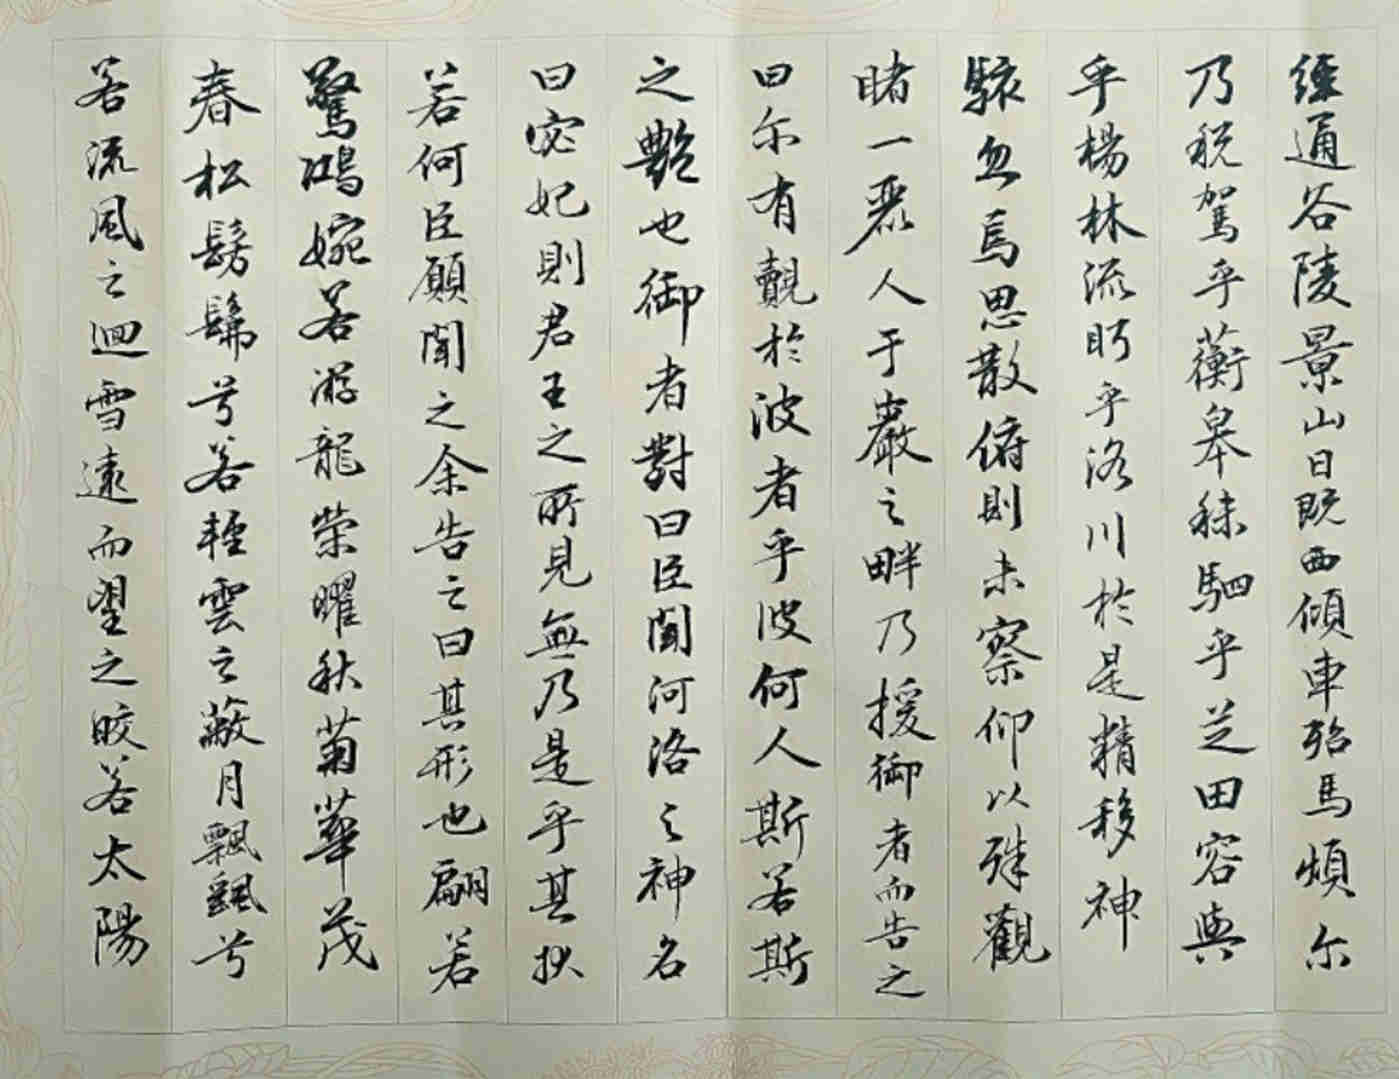 經通谷陵景山日既西傾車殆馬煩尓
乃税駕乎蘅皋秣駟乎芝田容與
乎楊林流眄乎洛川於是精移神
駭忽焉思散俯則未察仰以殊觀
睹一麗人于巖之畔乃援御者而告之
曰尓有覿於彼者乎彼何人斯若斯
之艷也御者對曰臣聞河洛之神名
曰宓妃則君王之所見無乃是乎其狀
若何臣願聞之余告之曰其形也翩若
驚鴻婉若游龍榮曜秋菊華茂
春松髣髴兮若輕雲之蔽月飄飖兮
若流風之迴雪遠而望之皎若太陽